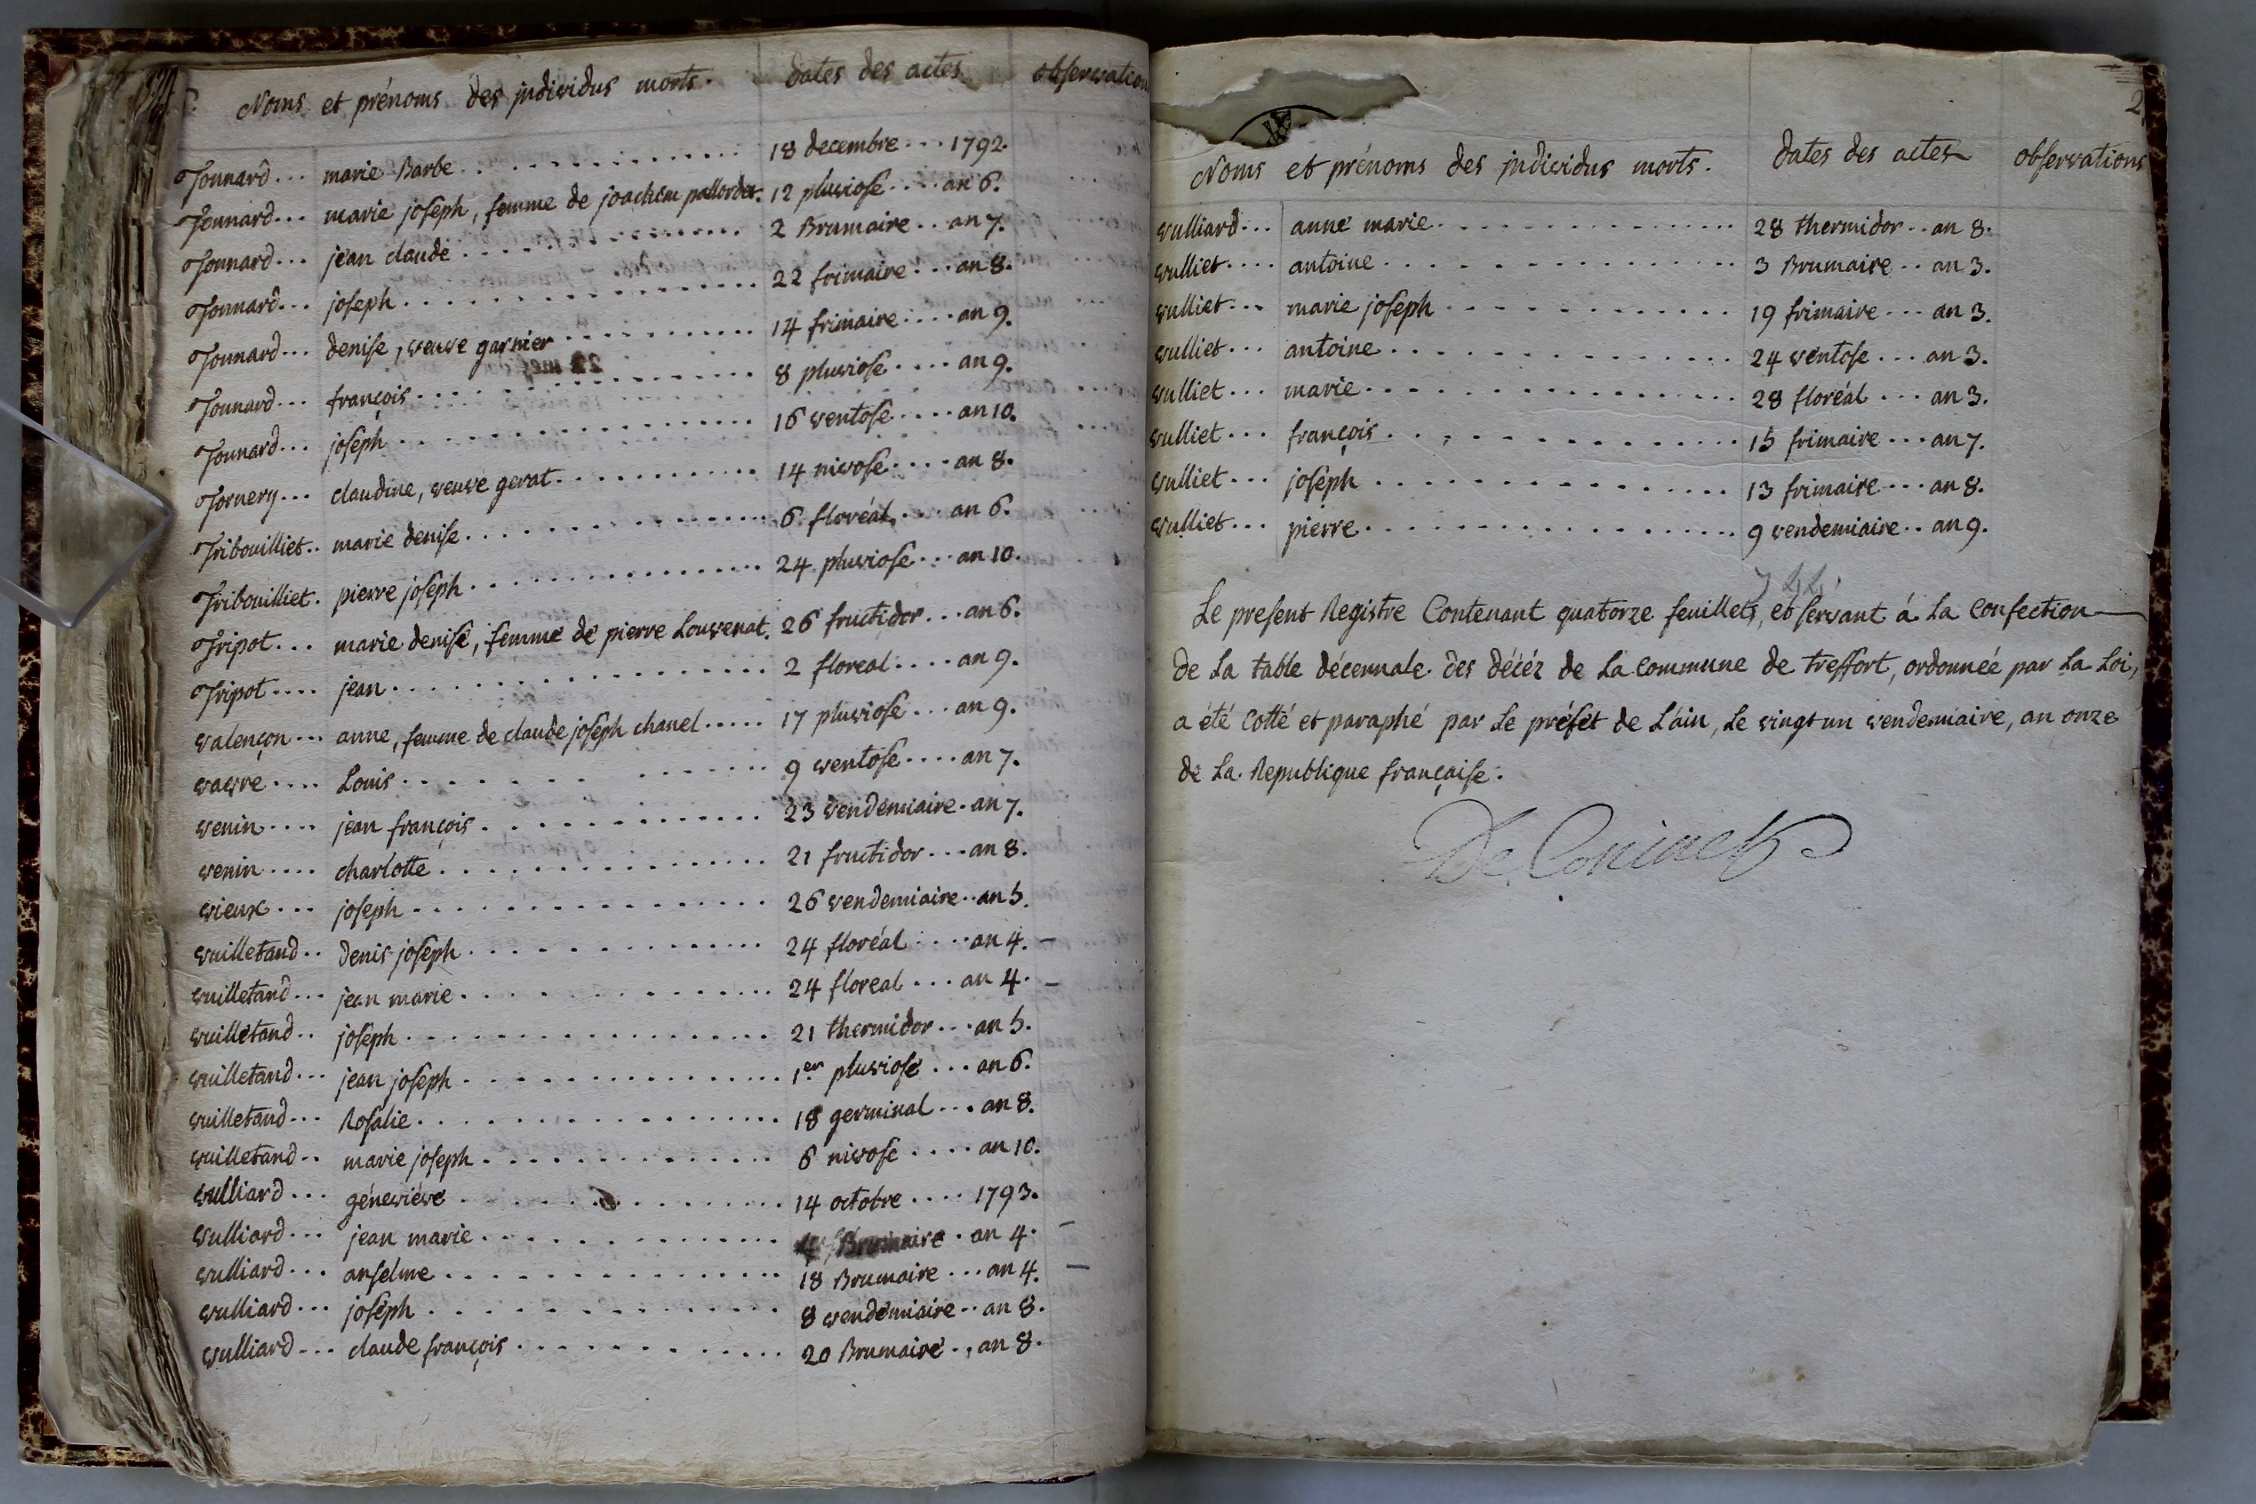 Noms et prénoms des individus morts. dates des actes observation
Tonnard... marie Barbe 18 decembre... 1792.
Tonnard... marie joseph, femme de joachim 12 pluviose.... an 6.
Tonnard... jean claude 2 Brumaire.. an 7.
Tonnard... joseph 22 frimaire... an 8.
Tonnard... denise, veuve garnier 14 frimaire.... an 9.
Tonnard... françois 8 pluviose.... an 9.
Tonnard... joseph 16 ventose.... an 10.
Tornery... claudine, veuve gerat 14 nivose.... an 8.
Tribouilliet.. marie denise 6 floréal.... an 6.
Tribouilliet. pierre joseph 24 pluviose... an 10.
Tripot... marie denise, femme de pierre Louvenat. 26 fructidor... an 6.
Tripot.... jean 2 floreal.... an 9.
valençon... anne, femme de claude joseph chanel..... 17 pluviose... an 9.
vavre.... Louis 9 ventose.... an 7.
venin.... jean françois 23 vendemiaire. an 7.
venin.... charlotte 21 fructidor... an 8.
vieux... joseph 26 vendemiaire.. an 5.
vuilletand.. denis joseph 24 floréal.... an 4. –
vuilletand... jean marie 24 floreal... an 4. –
vuilletand.. joseph 21 thermidor... an 5.
vuilletand... jean joseph 1er pluviose... an 6.
vuilletand... Rosalie 18 germinal... an 8.
vuilletand.. marie joseph 6 nivose.... an 10.
vulliard... géneviéve 14 octobre.... 1793.
vulliard... jean marie Brumaire. an 4. –
vulliard... anselme 18 Brumaire... an 4. –
vulliard... joseph 8 vendémiaire.. an 8.
vulliard... claude françois 20 Brumaire.. an 8.
2
Noms et prénoms des individus morts. dates des actes observations
vulliard... anne marie 28 thermidor.. an 8.
vulliet.... antoine 3 Brumaire.. an 3.
vulliet... marie joseph 19 frimaire... an 3.
vulliet... antoine 24 ventose... an 3.
vulliet... marie 28 floréal... an 3.
vulliet... françois 15 frimaire... an 7.
vulliet... joseph 13 frimaire... an 8.
vulliet... pierre 9 vendemiaire.. an 9.
Le present Registre Contenant quatorze feuillets, et servant á La Confection
de La table décennale des décéz de La commune de treffort, ordonnée par La Loi,
a été Cotté et paraphé par Le préfet de L'ain, Le vingt un vendemiaire, an onze
de La Republique française.
De Coninck